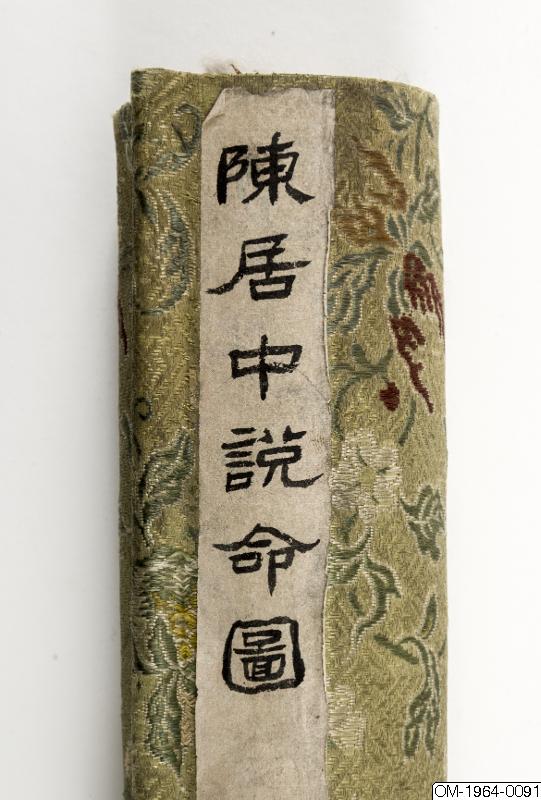 陳居中說命圖
OM-1964-0091